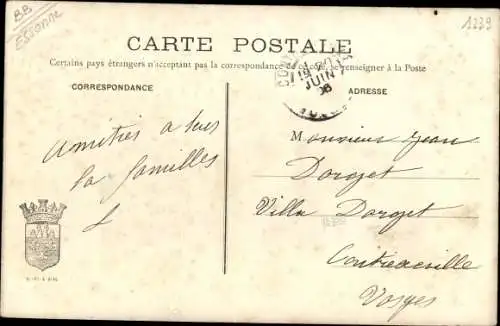 BB
Essonne
1239
CARTE POSTALE
Certains pays étrangers n'acceptant pas la correspondance de ce côté, se renseigner à la Poste
CORRESPONDANCE
ADRESSE
JUIN
06
Amitiés a tous
la familles
Monsieur Jean
Dorget
Villa Dorget
Contrexeville
Vosges